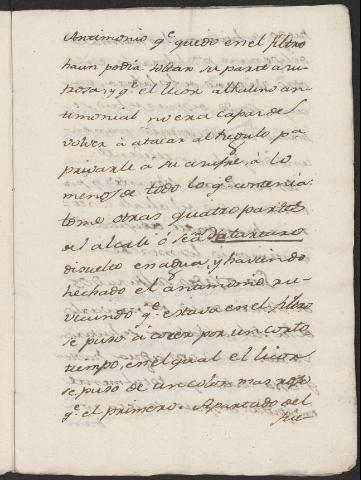 Antimonio q.e quedo en el filtro
haun podia soltar su parte azu
frosa, y q.e el licor alkalino an-
timonial no era capaz de
volver à atacar al Regulo, pa
privarle à su azufre, à lo
menos de todo lo q.e contenia:
tome otras quatro partes
del alcali ó sea de tartaro
disuelto en agua, y haviendo
hechado el antimonio ru-
vicundo q.e estava en el filtro
se puso à cocer por un corto
tiempo, en el qual el licor
se puso de un color mas roxo
q.e el primero. Apartado del
fue